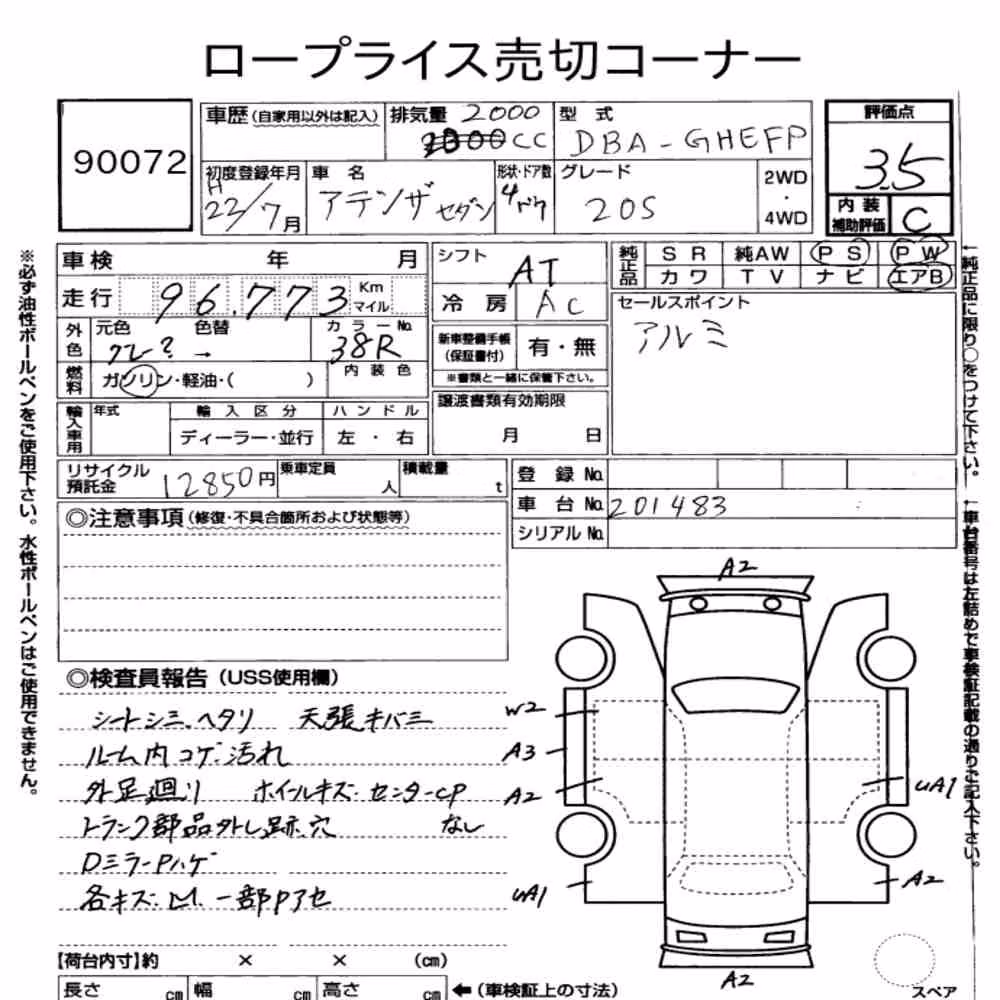 ロープライス売切コーナー
90072
車歴(自家用以外は記入)
排気量 2000
CC
型式
DBA-GHEFP
評価点
3.5
内装補助評価 C
初度登録年月
H22/7月
車名
アテンザ セダン
形状・ドア数
4ドア
グレード
20S
2WD
・
4WD
車検 年 月
走行 96,773 Km マイル
外色 元色 色替 カラーNo.
グレー? → 38R
燃料 ガソリン・軽油・( )
内装色
輸入車用 年式 輸入区分 ハンドル
ディーラー・並行 左・右
シフト AT
冷房 AC
新車整備手帳(保証書付) 有・無
※書類と一緒に保管下さい。
譲渡書類有効期限
月 日
純正品 SR 純AW PS PW
カワ TV ナビ エアB
セールスポイント
アルミ
リサイクル預託金 12850円
乗車定員 人
積載量 t
登録No.
車台No. 201483
シリアルNo.
◎注意事項(修復・不具合箇所および状態等)
◎検査員報告(USS使用欄)
シートシミ、ヘタリ 天張キバミ
ルーム内コゲ・汚れ
外足廻り ホイールキズ・センターCP
トランク部品外し跡、穴 なし
DミラーPハゲ
各キズ・凹、一部Pアセ
A2
W2
A3
A2
UA1
UA1
A2
A2
【荷台内寸】約 × × (cm)
長さ cm 幅 cm 高さ cm ←(車検証上の寸法)
スペア
※必ず油性ボールペンをご使用下さい。水性ボールペンはご使用できません。
↑純正品に限り○をつけて下さい。
↑車台番号は左詰めで車検証記載の通りご記入下さい。